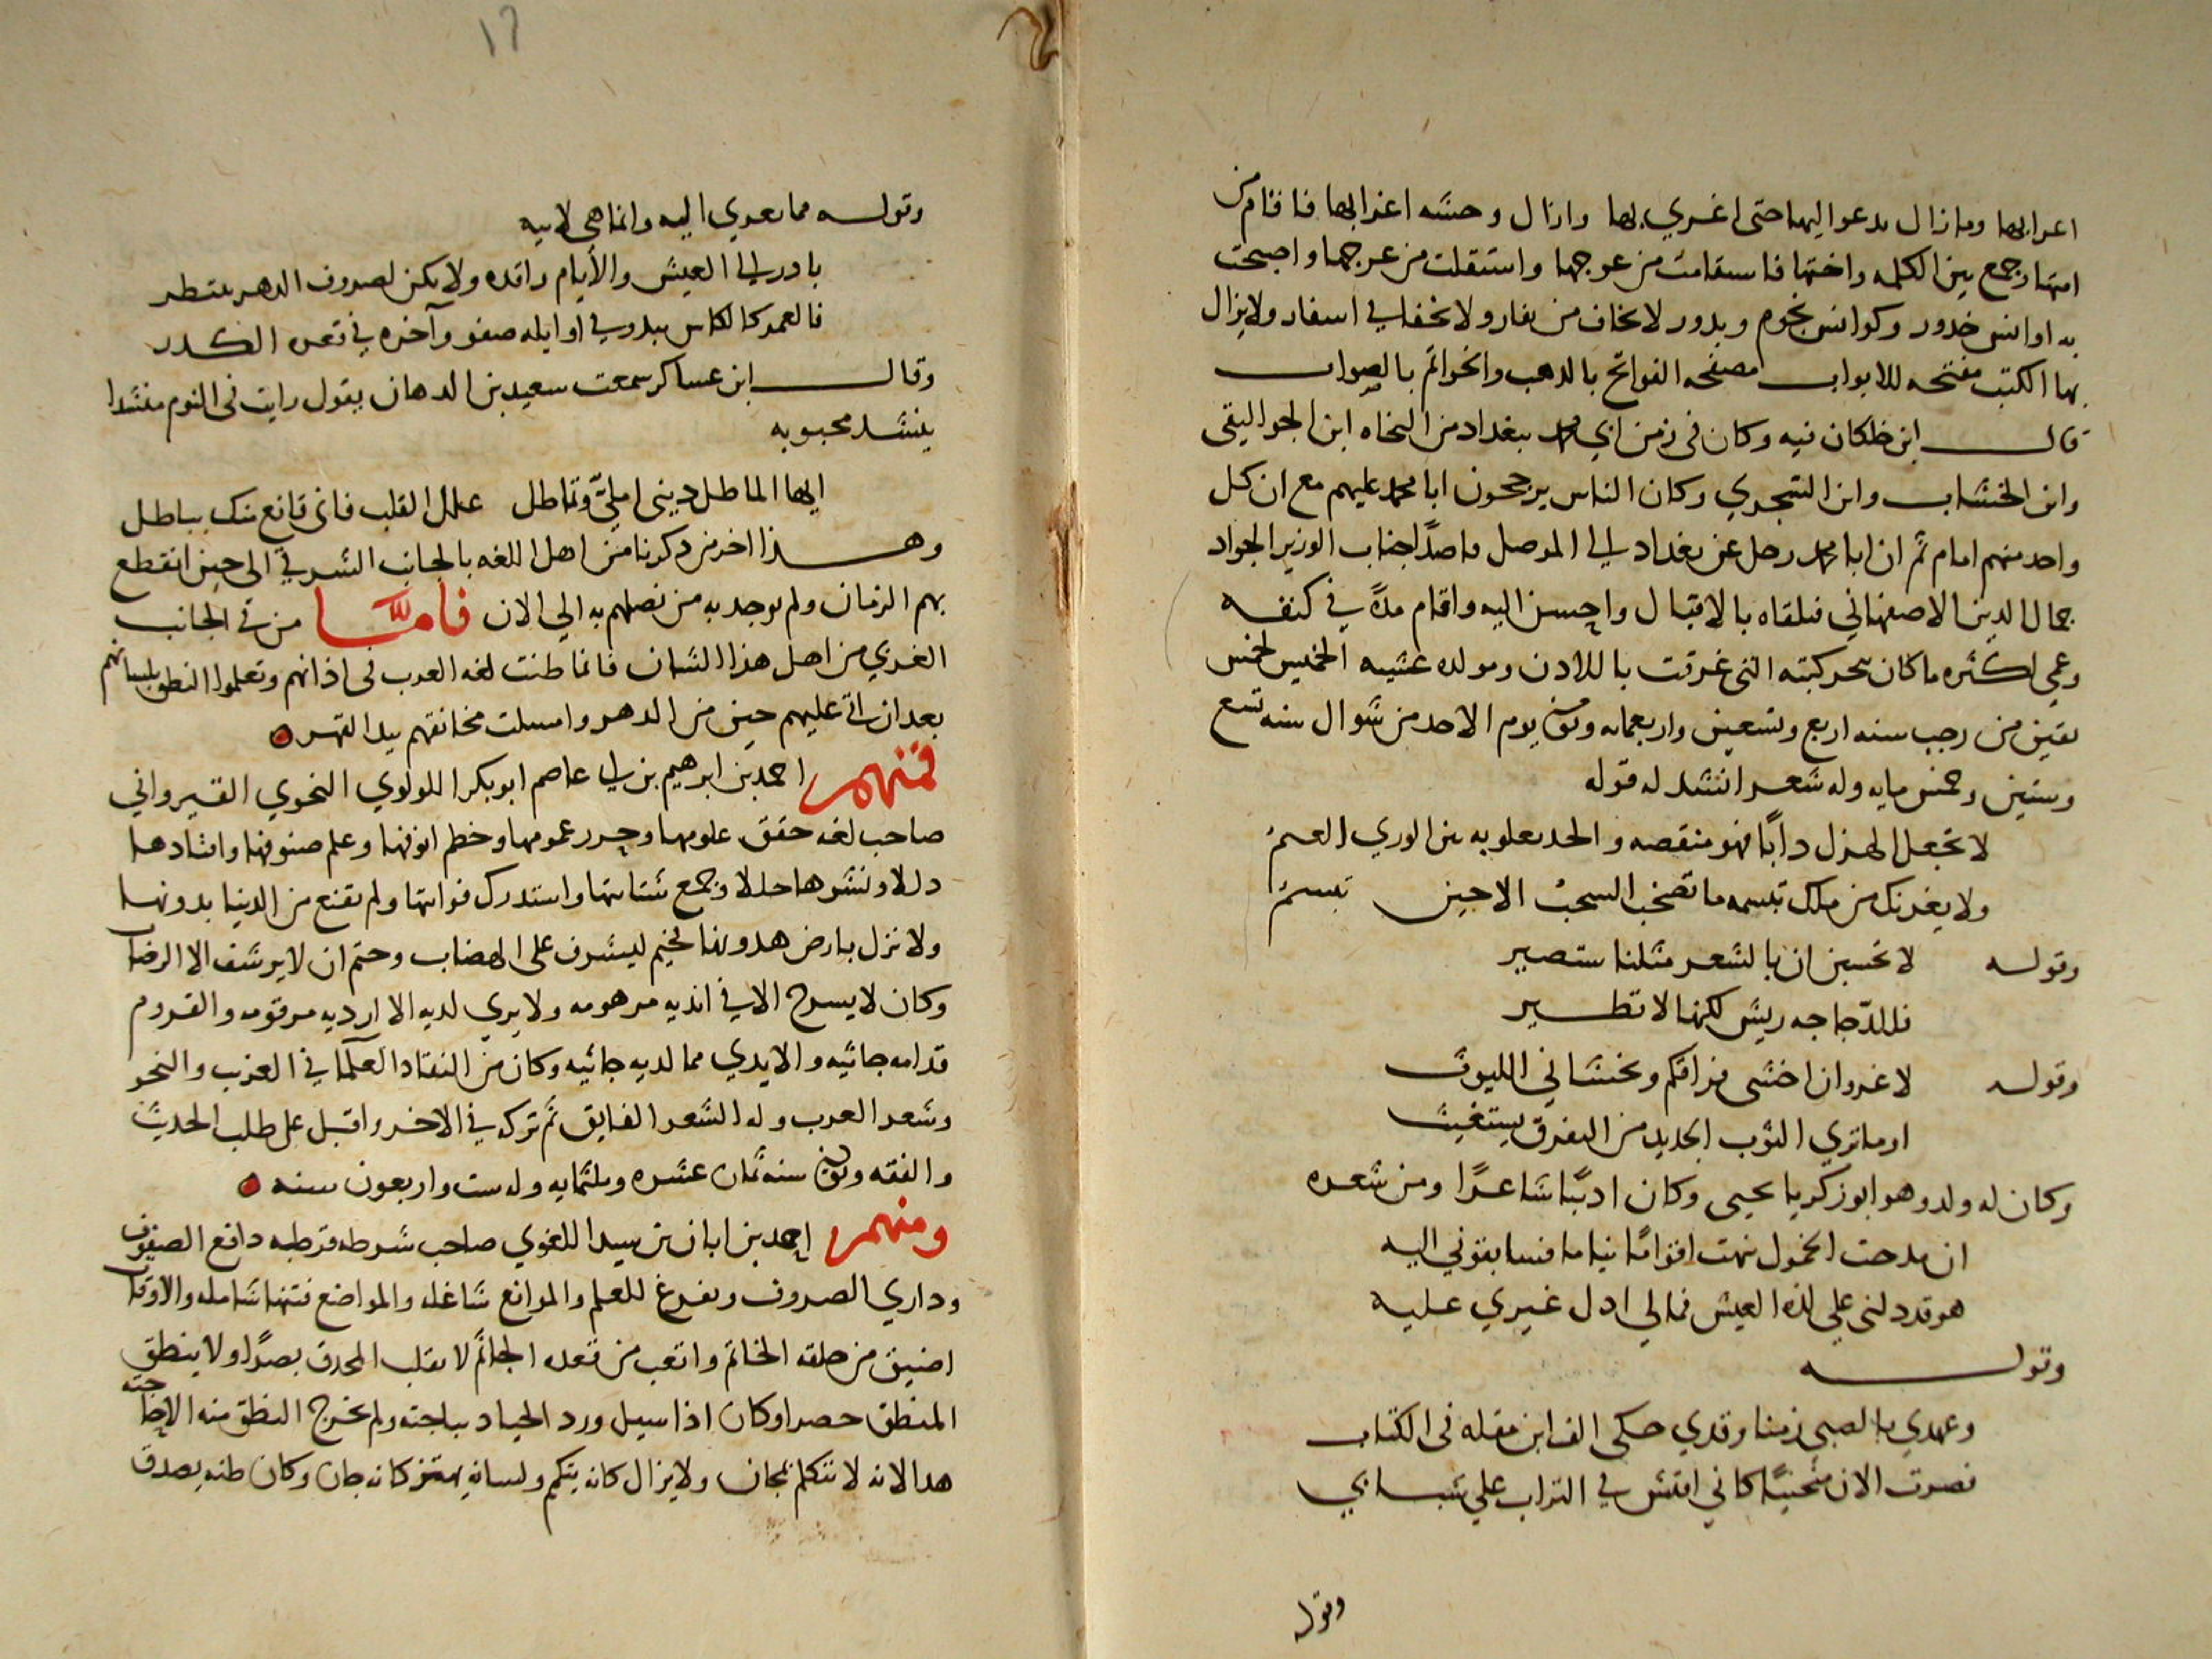 اعرابها وما زال يدعوا اليها حتى اغري بها وازال وحشه اغرابها فاقام من
امتها وجمع بين الكلمه واختها فاستقامت من عوجها واستقلت من عرجها واصبحت
به اوانس خدور وكوانس نجوم وبدور لا تخاف من نفار ولا تخفا في اسفار ولا يزال
بها الكتب مفتحه للابواب مصفحه الفواتح بالذهب والخواتم بالصواب
قال ابن خلكان فيه وكان في زمن ابي محمد ببغداد من النحاه ابن الجواليقي
وابن الخشاب وابن الشجري وكان الناس يرجحون ابا محمد عليهم مع ان كل
واحد منهم امام ثم ان ابا محمد رحل عن بغداد الي الموصل قاصدًا جناب الوزير الجواد
جمال الدين الاصفهاني فتلقاه بالاقبال واحسن اليه واقام مدة في كنفه
وعمي لكثره ما كان يبخر كتبه التي غرقت باللادن ومولده عشيه الخميس لخمس
بقين من رجب سنه اربع وتسعين واربعمايه وتوفي يوم الاحد من شوال سنه تسع
وستين وخمس مايه وله شعر انشد له قوله
لا تجعل الهزل دابًا فهو منقصه والجد يعلو به بين الوري القيم
ولا يغرنك من ملك تبسمه ما تصخب السحب الا حين تبتسم
وقوله لا تحسبن ان بالشعر مثلنا ستصير
فللدّجاجه ريش لكنها لا تطير
وقوله لا غرو ان اخشى فراقكم وتخشاني الليوث
اوما تري الثوب الجديد من التفرق يستغيث
وكان له ولد وهو ابو زكريا يحيى وكان اديبًا شاعرًا ومن شعره
ان مدحت الخمول نبهت اقوامًا نياما فسابقوني اليه
هو قد دلني علي لذه العيش فمالي ادل غيري عليه
وقوله
وعهدي بالصبى زمنا وقدي حكى الف ابن مقله في الكتاب
فصرت الان منحنيًا كاني افتش في التراب علي شبابي
وقوله
١٦
وقوله مما يعزي اليه وانما هي لابيه
بادر الي العيش والايام راقده ولا تكن لصروف الدهر تنتظر
فالعمر كالكاس يبدو في اوايله صفو وآخره في قعره الكدر
وقال ابن عساكر سمعت سعيد بن الدهان يقول رايت في النوم منشدا
ينشد محبوبه
ايها الماطل ديني املئّ وتماطل علل القلب فاني قانع منك بباطل
وهذا اخر من ذكرنا من اهل اللغه بالجانب الشرقي الى حين انقطع
بهم الزمان ولم يوجد به من نصلهم به الي الان فامّا من في الجانب
الغربي من اهل هذا الشان فانما طنت لغه العرب في اذانهم وتعلموا النطق بلسانهم
بعد ان اتى عليهم حين من الدهر وامتلت مخانقهم بيد القهر
فمنهم احمد بن ابرهيم بن ابي عاصم ابو بكر اللولوي النحوي القيرواني
صاحب لغه حقق علومها وحرر عمومها وخطم انوفها وعلم صنوفها واقتادها
ذللا ونشرها حللا وجمع شتاتها واستدرك فواتها ولم تقنع من الدنيا بدونها
ولا نزل بارض هدونها لخيم ليشرف على الهضاب وحتم ان لا يرشف الا الرضاب
وكان لا يسرح الا في انديه مرهومه ولا يري لديه الا ارديه مرقومه والقروم
قدامه جاثيه والايدي مما لديه جاثيه وكان من النقاد العلما في الغريب والنحو
وشعر العرب وله الشعر الفايق ثم تركه في الاخر واقبل على طلب الحديث
والفقه وتوفي سنه ثمان عشره وثلثمايه وله ست واربعون سنه
ومنهم احمد بن ابان بن سيد اللغوي صاحب شرطه قرطبه دافع الصيوف
وداري الصروف وتفرغ للعلم والموانع شاغله والمواضع فتنها شامله والاوقات
اضيق من حلقه الخاتم واتعب من قعده الجاثم لا يقلب المحدق بصرًا ولا ينطق
المنطق حصرا وكان اذا سيل ورد الجياد بباحته ولم يخرج النطق منه الا لحاجته
هذا لانه لا يتكلم لمجان ولا يزال كانه يتكلم ولسانه يهتز كانه جان وكان طنه يصدق